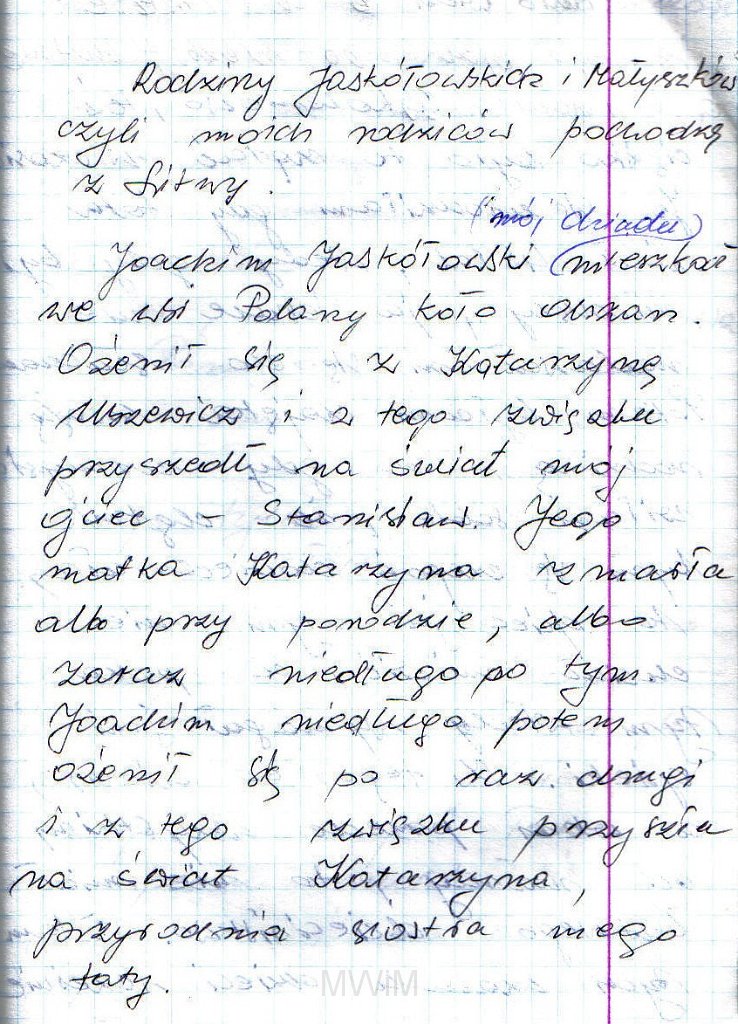 Rodziny Jaskółowskich i Małyszków
czyli moich rodziców pochodzą
z Litwy.
(mój dziadek)
Joachim Jaskółowski mieszkał
we wsi Polany koło Olszan.
Ożenił się z Katarzyną
Uszewicz i z tego związku
przyszedł na świat mój
ojciec – Stanisław. Jego
matka Katarzyna zmarła
albo przy porodzie, albo
zaraz niedługo po tym.
Joachim niedługo potem
ożenił się po raz drugi
i z tego związku przyszła
na świat Katarzyna,
przyrodnia siostra mego
taty.
MWIM